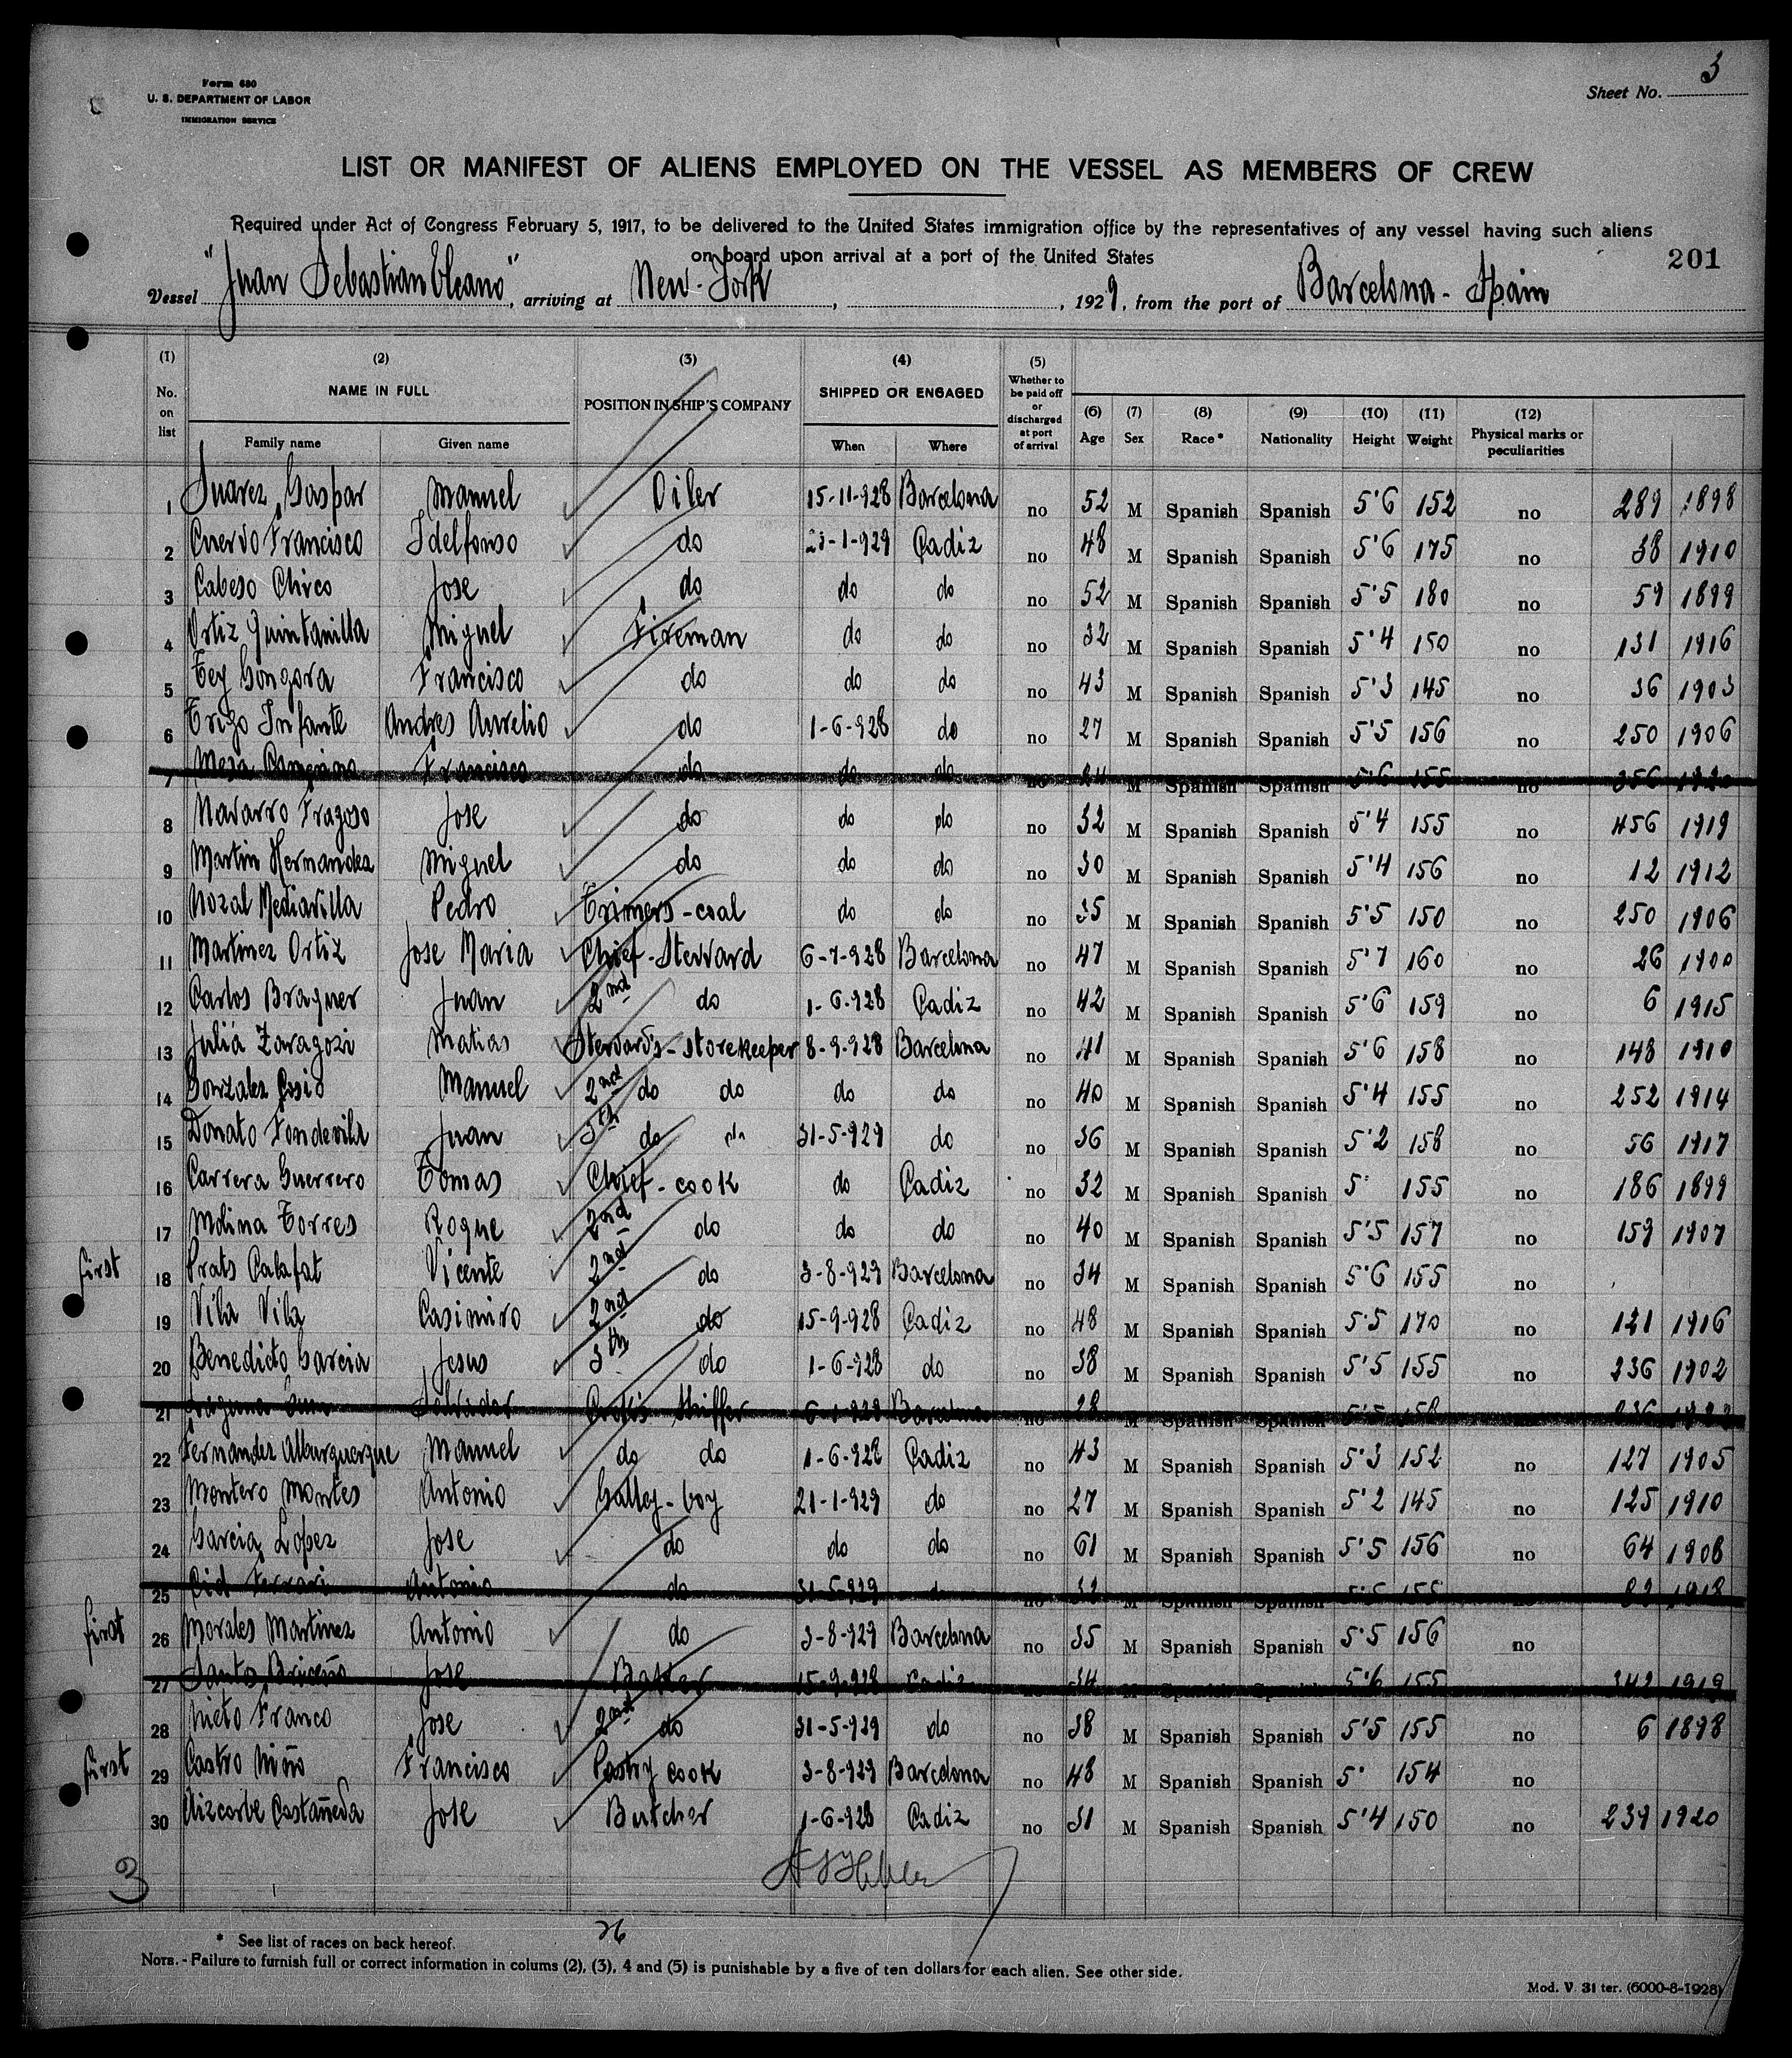 3
Form 680
U. S. DEPARTMENT OF LABOR
IMMIGRATION SERVICE
Sheet No.
LIST OR MANIFEST OF ALIENS EMPLOYED ON THE VESSEL AS MEMBERS OF CREW
Required under Act of Congress February 5, 1917, to be delivered to the United States immigration office by the representatives of any vessel having such aliens
on board upon arrival at a port of the United States
201
Vessel "Juan Sebastian Elcano", arriving at New-York, , 1929, from the port of Barcelona - Spain
(1) (2) (3) (4) (5)
No. on list NAME IN FULL POSITION IN SHIP'S COMPANY SHIPPED OR ENGAGED Whether to be paid off or discharged at port of arrival (6) Age (7) Sex (8) Race* (9) Nationality (10) Height (11) Weight (12) Physical marks or peculiarities
Family name Given name When Where
1 Juarez Gaspar Manuel Oiler 15-11-928 Barcelona no 52 M Spanish Spanish 5'6 152 no 289 1898
2 Cuervo Francisco Idelfonso do 21-1-929 Cadiz no 48 M Spanish Spanish 5'6 175 no 38 1910
3 Cabeso Chico Jose do do do no 52 M Spanish Spanish 5'5 180 no 59 1899
4 Ortiz Quintanilla Miguel Fireman do do no 32 M Spanish Spanish 5'4 150 no 131 1916
5 Tey Gongora Francisco do do do no 43 M Spanish Spanish 5'3 145 no 36 1903
6 Trigo Infante Andres Aurelio do 1-6-928 do no 27 M Spanish Spanish 5'5 156 no 250 1906
7 Mesa Francisco do do do no 24 M Spanish Spanish 5'6 155 no 356 1920
8 Navarro Fragoso Jose do do do no 32 M Spanish Spanish 5'4 155 no 456 1919
9 Martin Hernandez Miguel do do do no 30 M Spanish Spanish 5'4 156 no 12 1912
10 Nozal Mediavilla Pedro Trimers-coal do do no 35 M Spanish Spanish 5'5 150 no 250 1906
11 Martinez Ortiz Jose Maria Chief-Stevard 6-7-928 Barcelona no 47 M Spanish Spanish 5'7 160 no 26 1900
12 Carlos Braquer Juan 2nd do 1-6-928 Cadiz no 42 M Spanish Spanish 5'6 159 no 6 1915
13 Juliá Zaragozi Matias Stevard's-storekeeper 8-9-928 Barcelona no 41 M Spanish Spanish 5'6 158 no 148 1910
14 Gonzalez Cosio Manuel 2nd do do do do no 40 M Spanish Spanish 5'4 155 no 252 1914
15 Donato Fondevila Juan 3th do do 31-5-929 do no 36 M Spanish Spanish 5'2 158 no 56 1917
16 Carrera Guerrero Tomas Chief-cook do Cadiz no 32 M Spanish Spanish 5' 155 no 186 1899
17 Molina Torres Roque 2nd do do do no 40 M Spanish Spanish 5'5 157 no 159 1907
first 18 Prats Calafat Vicente 2nd do 3-8-929 Barcelona no 34 M Spanish Spanish 5'6 155 no
19 Vila Vila Casimiro 2nd do 15-9-928 Cadiz no 48 M Spanish Spanish 5'5 170 no 121 1916
20 Benedicto Garcia Jesus 3th do 1-6-928 do no 38 M Spanish Spanish 5'5 155 no 236 1902
21 Salvador Barcelona no 28 M Spanish Spanish no
22 Fernandez Alburquerque Manuel do do 1-6-928 Cadiz no 43 M Spanish Spanish 5'3 152 no 127 1905
23 Montero Montes Antonio Galley-boy 21-1-929 do no 27 M Spanish Spanish 5'2 145 no 125 1910
24 Garcia Lopez Jose do do do no 61 M Spanish Spanish 5'5 156 no 64 1908
25 Cid Ferrari Antonio do 31-5-929 no M Spanish Spanish 5'5 155 no 1918
first 26 Morales Martinez Antonio do 3-8-929 Barcelona no 35 M Spanish Spanish 5'5 156 no
27 Santos Briceño Jose Baker 15-9-928 Cadiz 34 M Spanish 5'6 155 342 1919
28 Nieto Franco Jose 2nd do 31-5-929 do no 38 M Spanish Spanish 5'5 155 no 6 1898
first 29 Castro Niño Francisco Pastry cook 3-8-929 Barcelona no 48 M Spanish Spanish 5' 154 no
30 Aizcorbe Castañeda Jose Butcher 1-6-928 Cadiz no 31 M Spanish Spanish 5'4 150 no 239 1920
3
26
* See list of races on back hereof.
NOTE. - Failure to furnish full or correct information in colums (2), (3), 4 and (5) is punishable by a five of ten dollars for each alien. See other side.
Mod. V. 31 ter. (6000-8-1928)